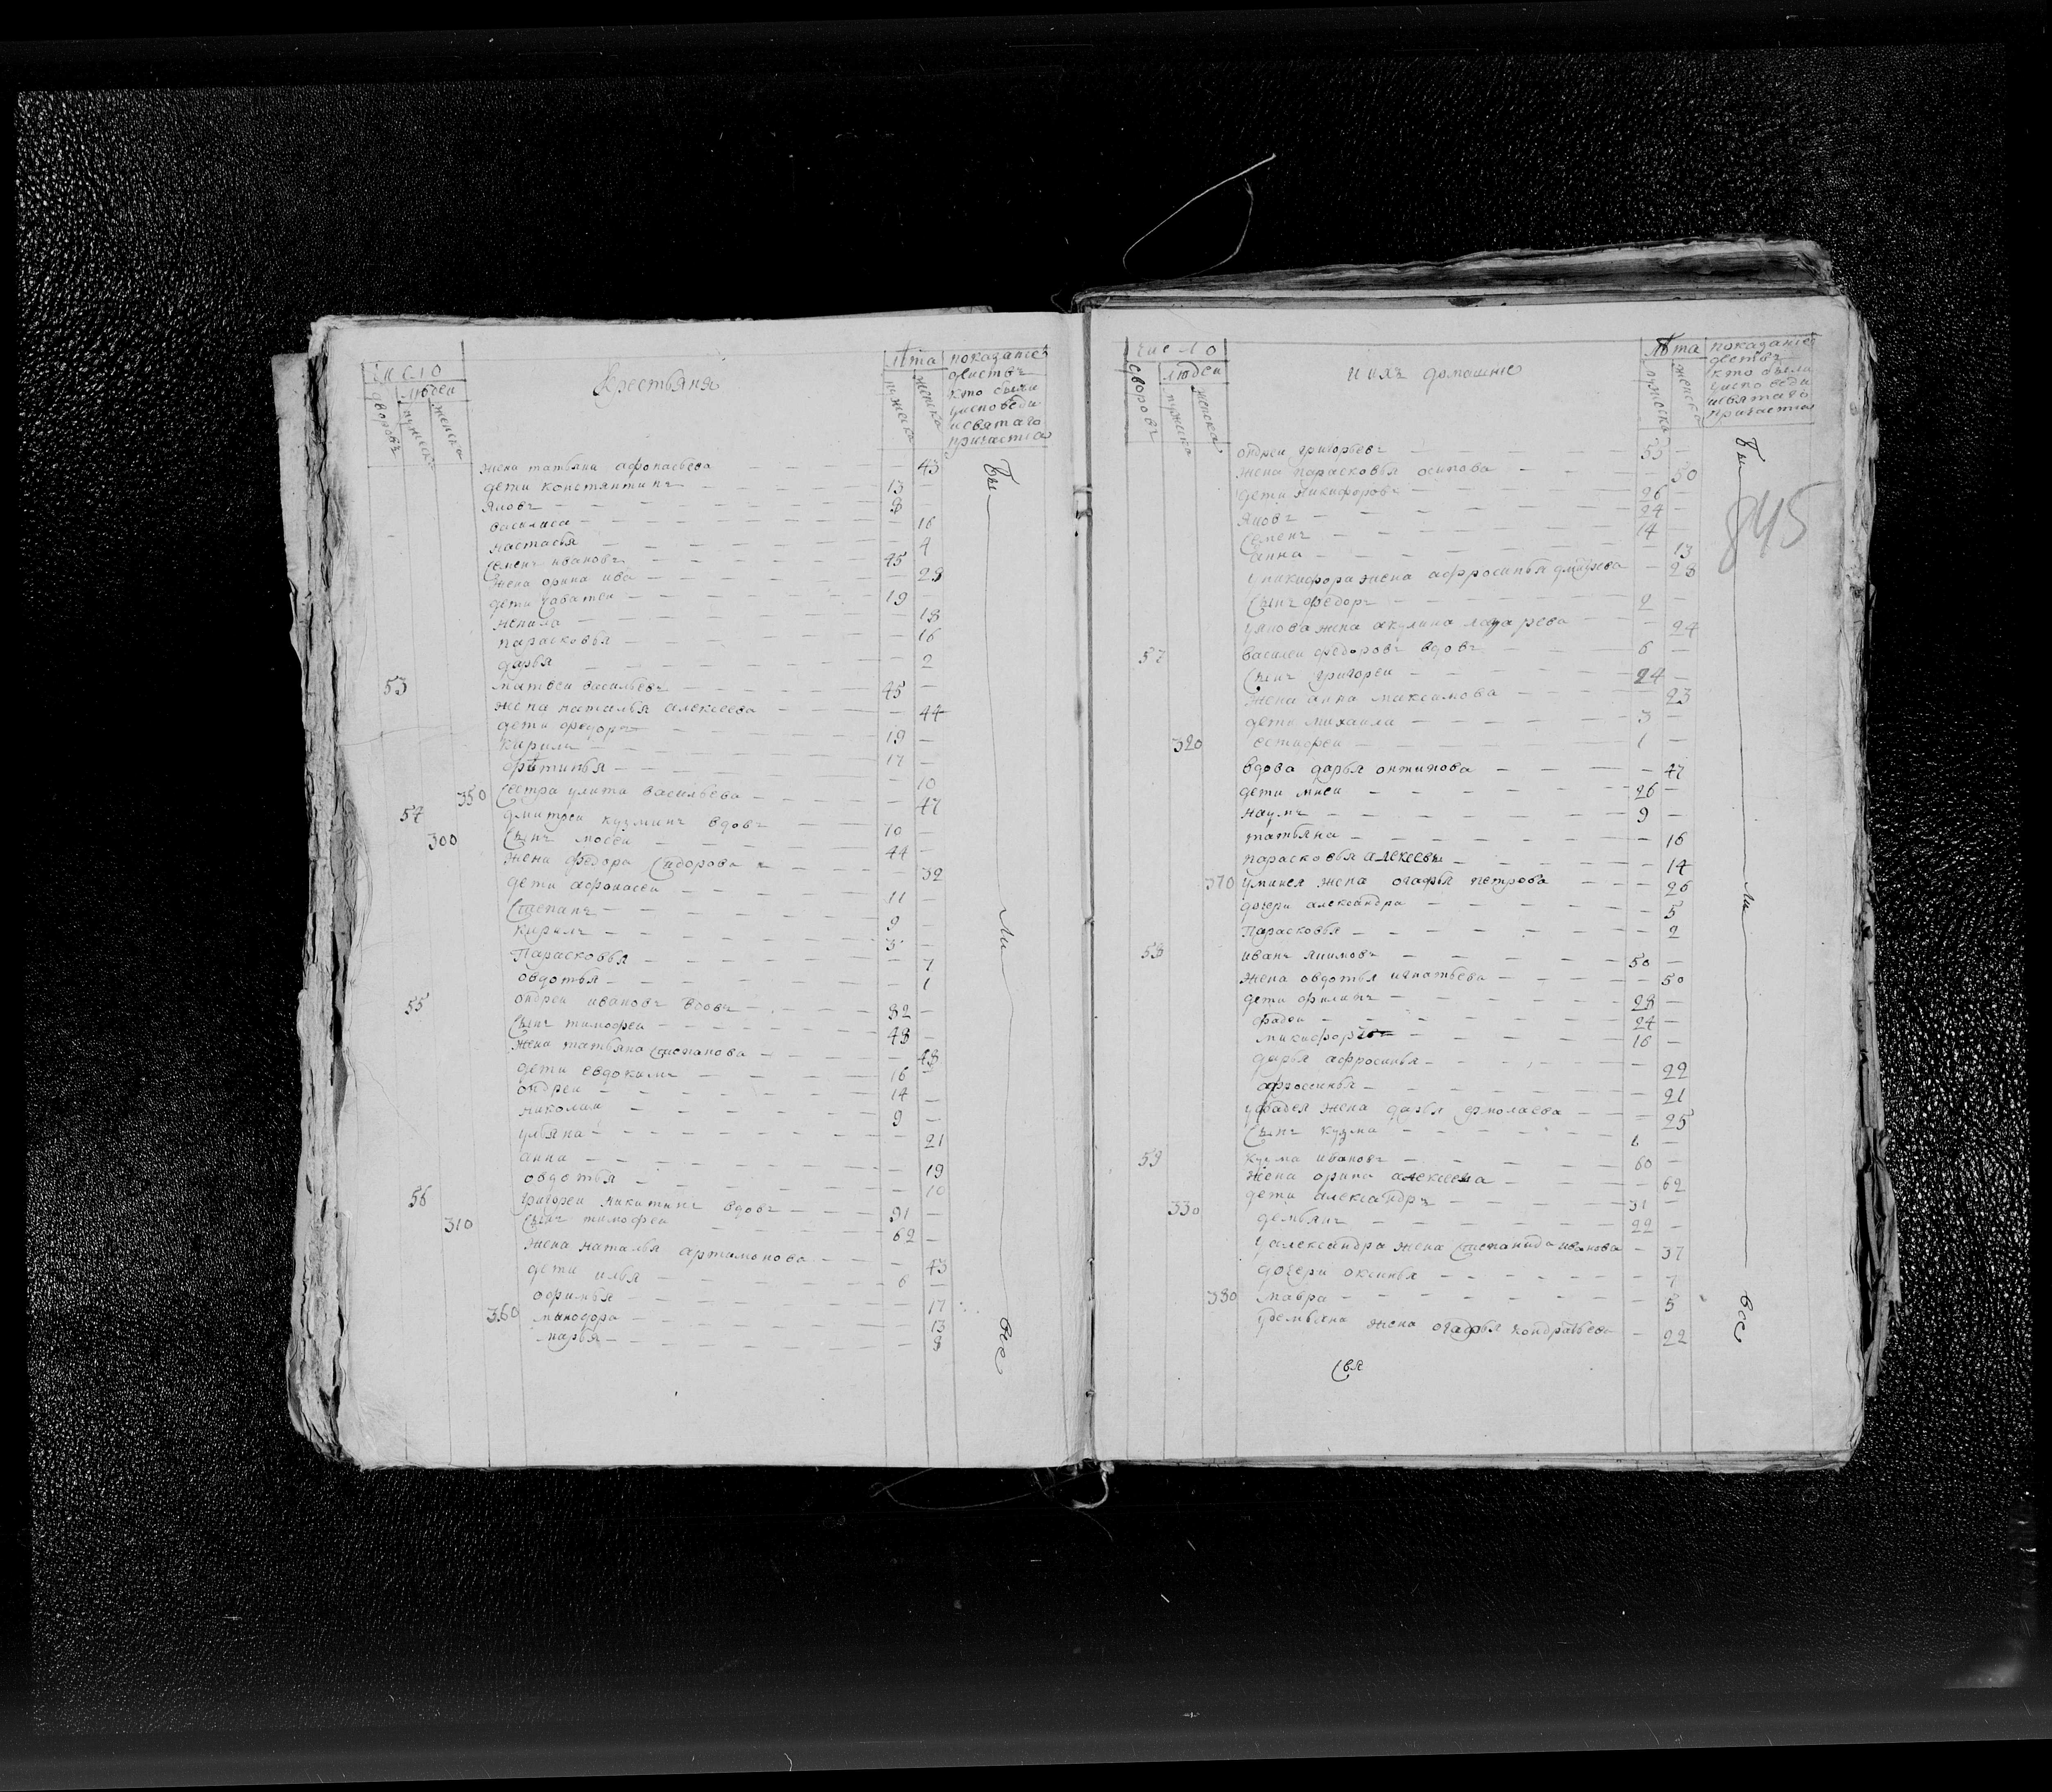 число
людеи
дворовъ
мужеска
женска
Крестьяня
Лѣта
мужеска
женска
показание
деиствъ
кто были
уисповеди
исвятаго
причастиа
жена татьяна афонасьева — 43
дети константинъ — 13
яковъ — 8
василиса — 16
настасья — 4
Семенъ ивановъ — 45
жена орина ива — 28
дети — 19
ненила — 18
парасковья — 16
дарья — 2
53 матвеи васильевъ — 45
жена наталья алексеева — 44
дети федоръ — 19
кирила — 17
фѣтинья — 10
350 Сестра улита васильева — 47
54 дмитреи кузминъ вдовъ — 70
300 Сынъ мосеи — 44
жена федора Сидорова — 32
дети афонасеи — 11
Степанъ — 9
кирилъ — 3
Парасковья — 7
овдотья — 1
55 ондреи ивановъ вдовъ — 82
Сынъ тимофеи — 48
жена татьяна Степанова — 48
дети евдокимъ — 16
ондреи — 14
николаи — 9
ульяна — 21
анна — 19
овдотья — 10
56 григореи никитинъ вдовъ — 91
310 Сынъ тимофеи — 62
жена наталья артимонова — 43
дети илья — 6
офимья — 17
360 минодора — 13
марья — 8
Бы
ли
все
число
дворовъ
людеи
мужеска
женска
и ихъ домашние
Лѣта
мужеска
женска
показание
деиствъ
кто были
уиспо веди
исвятаго
причастиа
845
ондреи григорьевъ — 53
жена парасковья осипова — 50
дети никифоръ — 26
яковъ — 24
Семенъ — 14
анна — 13
уникифора жена афросинья — 28
Сынъ федоръ — 2
уякова жена акулина лазарева — 24
57 василеи федоровъ вдовъ — 6
Сынъ григореи — 24
жена анна максимова — 23
дети михаила — 3
320 естифеи — 1
вдова дарья онтипова — 47
дети минеи — 26
наумъ — 9
татьяна — 16
парасковья — 14
370 уминея жена огафья петрова — 26
дочери александра — 5
Парасковья — 2
58 иванъ якимовъ — 50
жена овдотья игнатьева — 50
дети филипъ — 28
фадеи — 24
никифоръ — 16
дарья афросинья — 22
афросинья — 21
уфадея жена дарья ермолаева — 25
Сынъ кузма — 1
59 кузма ивановъ — 60
жена орина алексеева — 62
дети александръ — 31
330 демьянъ — 22
уалександра жена Степанида иванова — 37
дочери оксинья — 7
380 мавра — 5
удемьяна жена огафья кондратьева — 22
Свя
Бы
ли
все